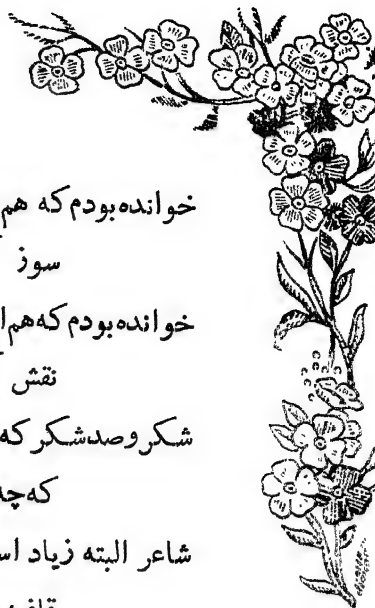 خوانده بودم که هم
سوز
خوانده بودم که هم ا
نقش
شکر و صد شکر که
که چه
شاعر البته زیاد اس
قاف